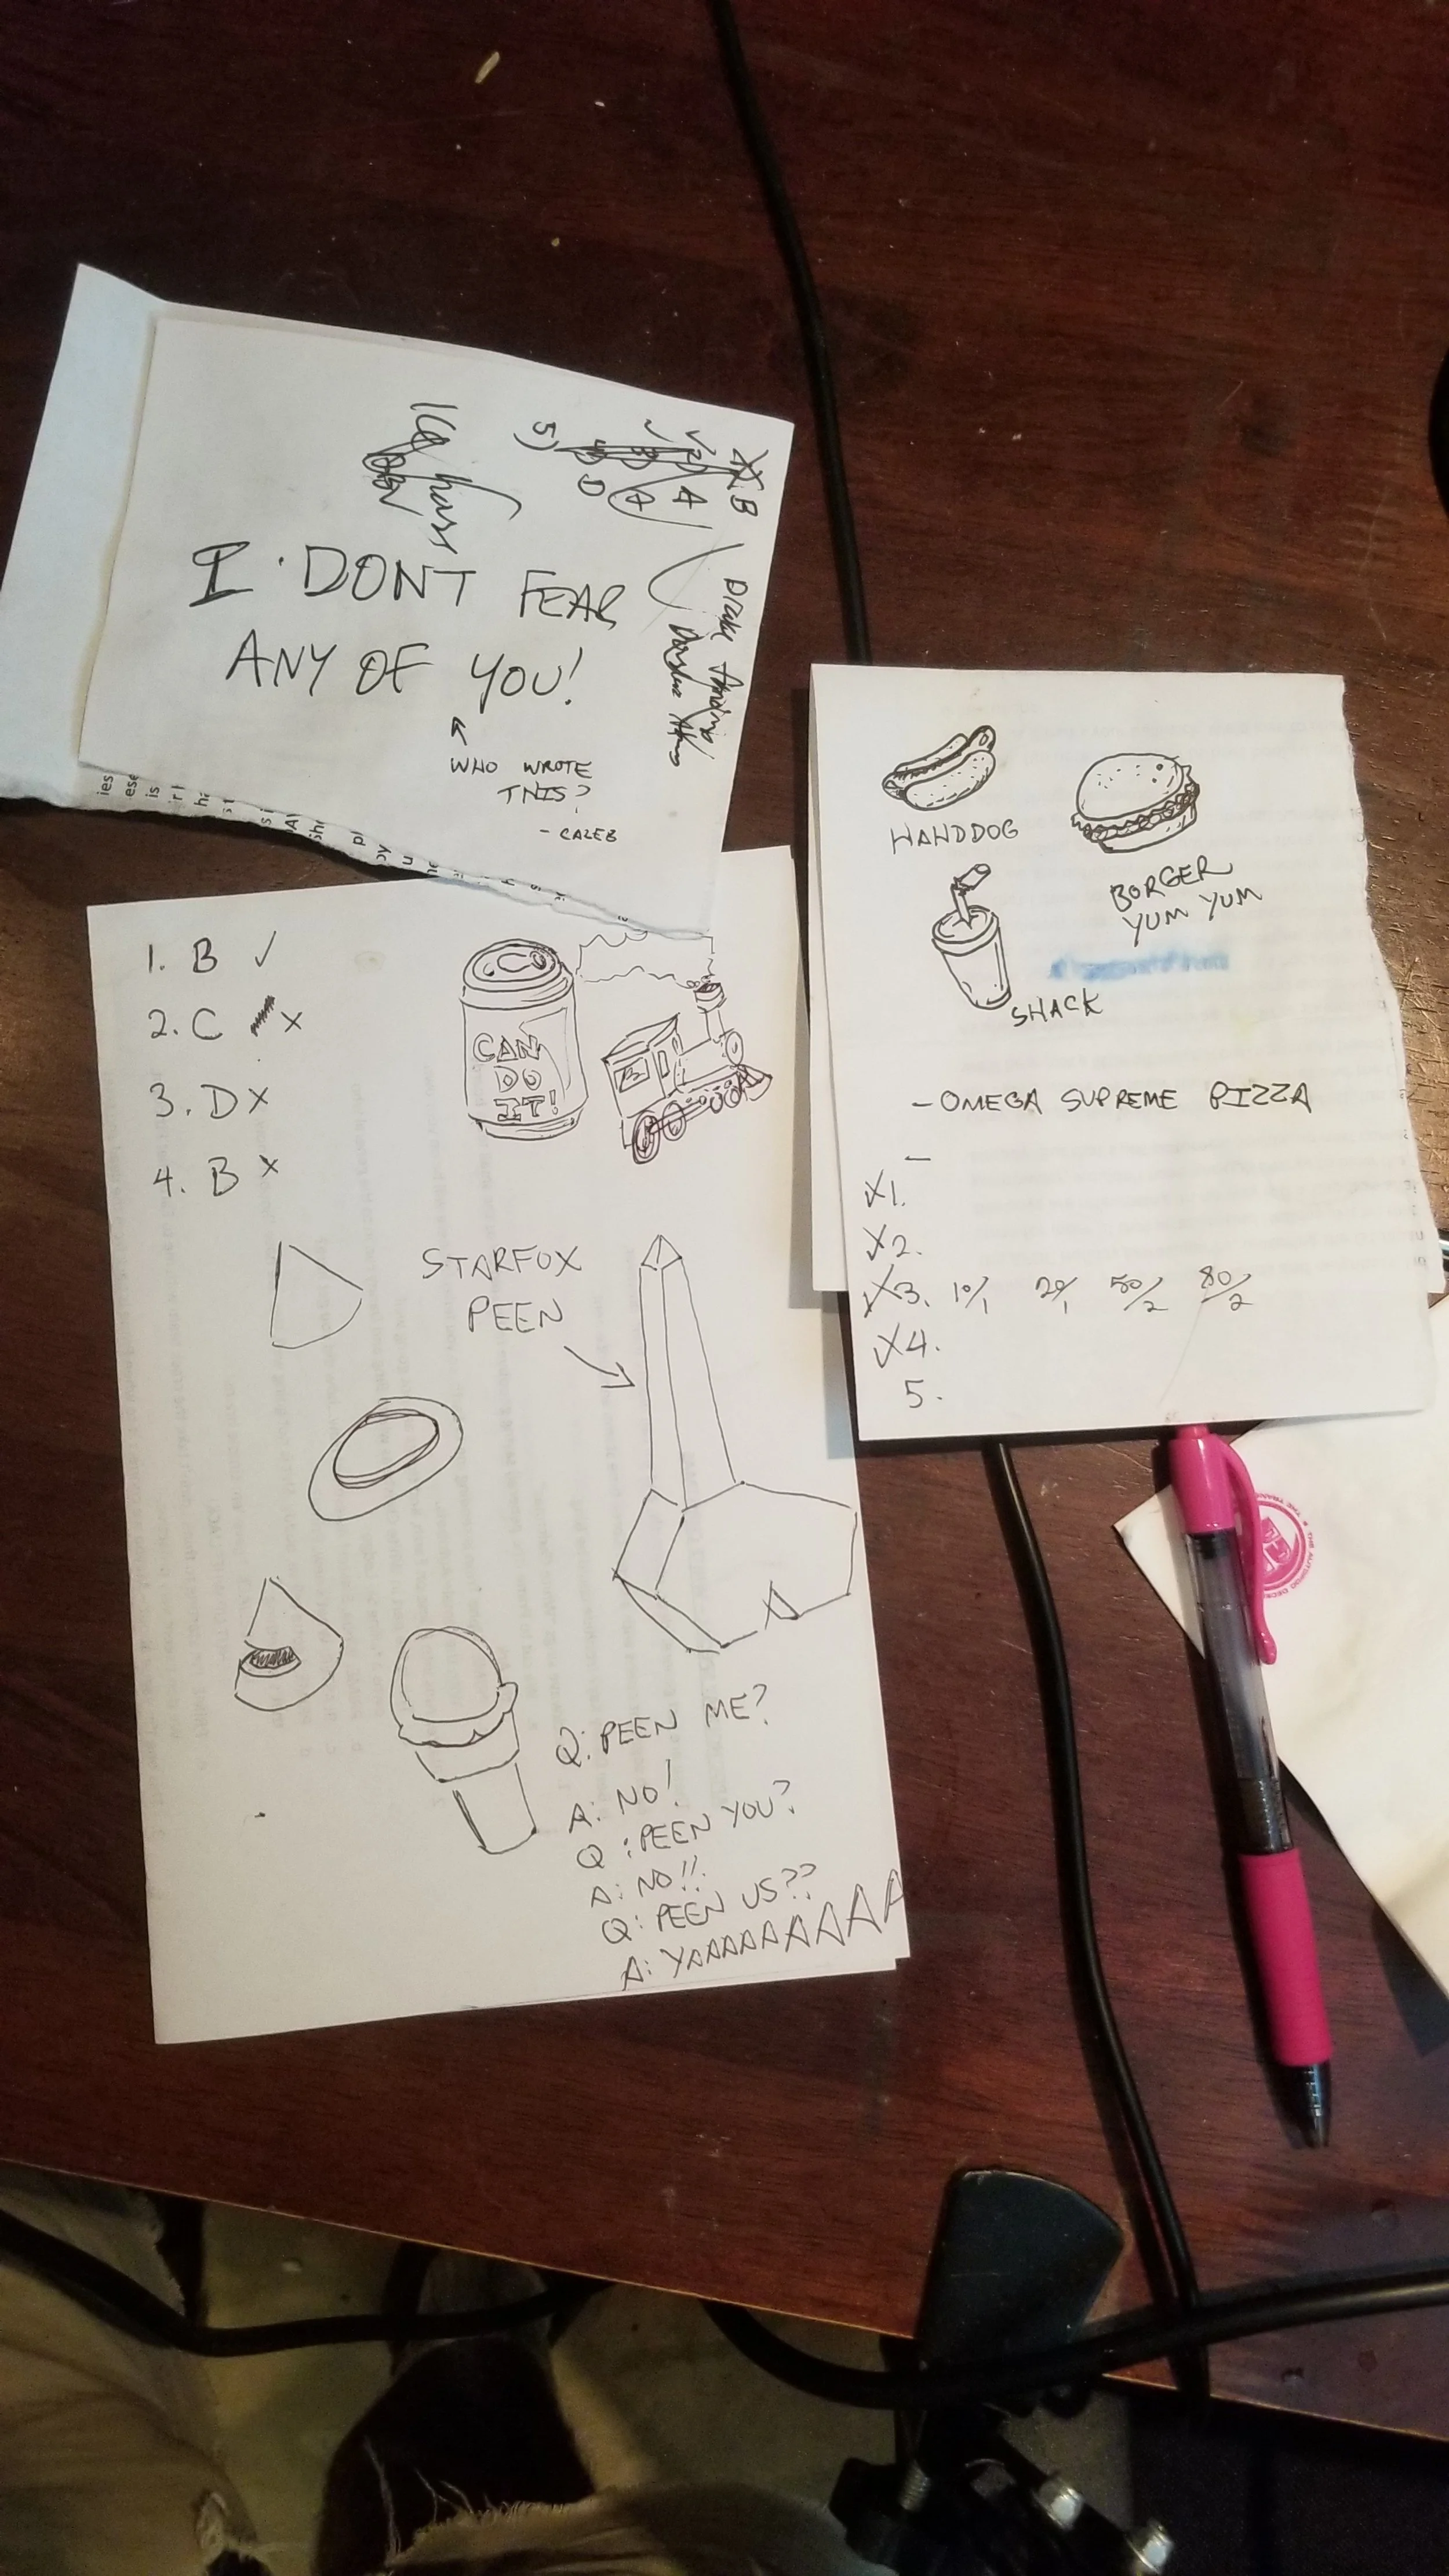 I DONT FEAR
ANY OF YOU!
WHO WROTE
THIS?
- CALEB
B
A
A
D
5)
HAWDDOG
BORGER
YUM YUM
SHACK
- OMEGA SUPREME PIZZA
-
1.
2.
3. 10/1 20/1 50/2 80/2
4.
5.
1. B ✓
2. C x
3. D x
4. B x
CAN
DO
IT!
STARFOX
PEEN
Q: PEEN ME?
A: NO!
Q: PEEN YOU?
A: NO!!
Q: PEEN US??
A: YAAAAAAAAAA